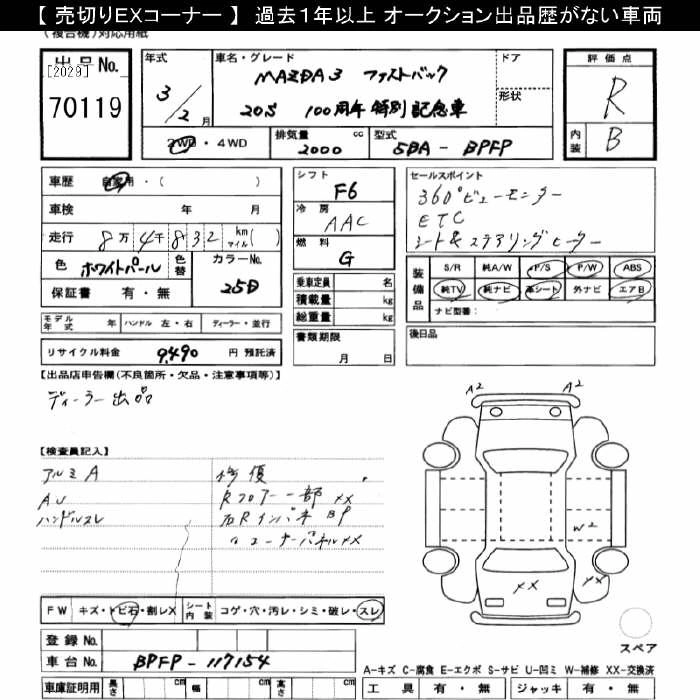 【 売切りEXコーナー 】 過去1年以上 オークション出品歴がない車両
(複合機)対応用紙
出品No.
[2029]
70119
年式
3/2月
車名・グレード
MAZDA3 ファストバック
20S 100周年 特別記念車
ドア
形状
評価点
R
内装
B
2WD・4WD
排気量 2000 cc
型式 5BA - BPFP
車歴 自家用・( )
車検 年 月
走行 8万4千832 km マイル( )
色 ホワイトパール
色替
カラーNo. 25D
保証書 有・無
シフト F6
冷房 AAC
燃料 G
乗車定員 名
積載量 kg
総重量 kg
書類期限
月 日
セールスポイント
360°ビューモニター
ETC
シート&ステアリングヒーター
装備品
S/R 純A/W P/S P/W ABS
純TV 純ナビ 革シート 外ナビ エアB
ナビ型番:
後日品
モデル年式 年 ハンドル 左・右 ディーラー・並行
リサイクル料金 9,490 円 預託済
【出品店申告欄(不良箇所・欠品・注意事項等)】
ディーラー出品
【検査員記入】
アルミA
AJ
ハンドルスレ
修復
Rフロアー一部XX
右Rインパネ BP
〃コーナーパネルXX
A2
A2
W2
XX
XX
FW キズ・トビ石・割レX
シート内装 コゲ・穴・汚レ・シミ・破レ・スレ
スペア
登録No.
車台No. BPFP-117154
A-キズ C-腐食 E-エクボ S-サビ U-凹ミ W-補修 XX-交換済
車庫証明用 長さ cm 幅 cm 高さ cm
工具 有・無 ジャッキ 有・無